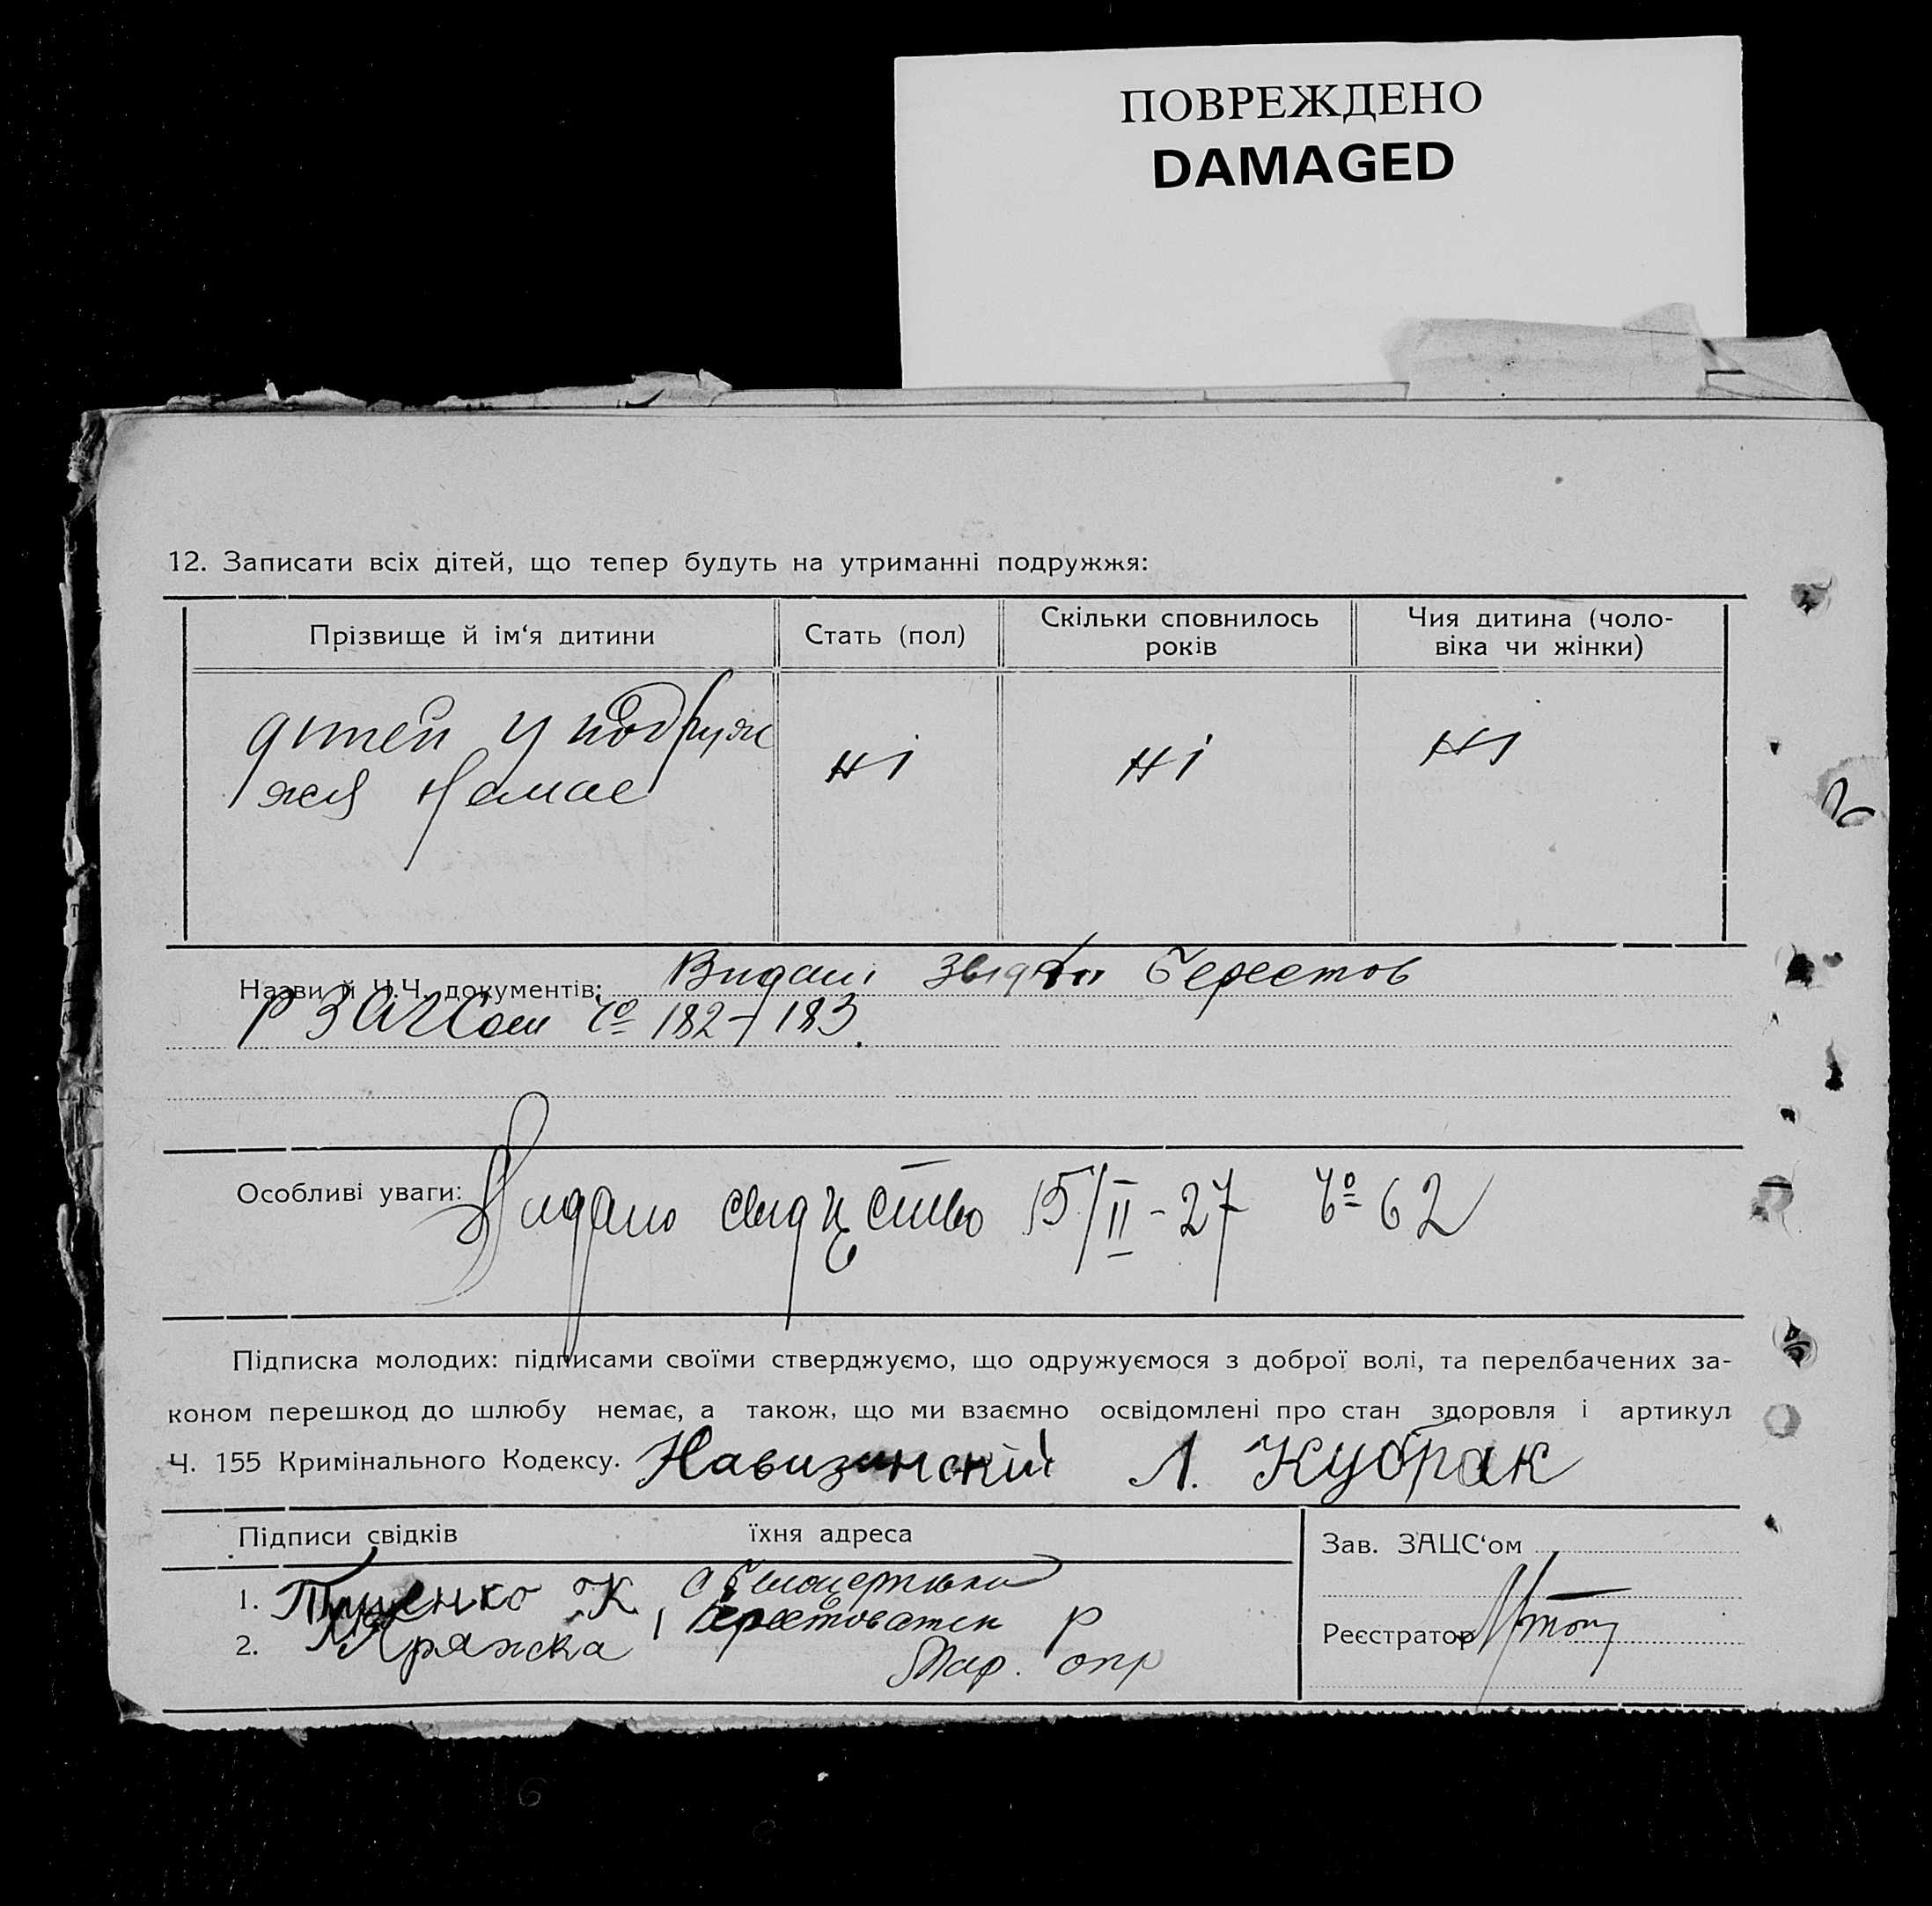 ПОВРЕЖДЕНО
DAMAGED
12. Записати всіх дітей, що тепер будуть на утриманні подружжя:
Прізвище й ім‘я дитини
Стать (пол)
Скільки сповнилось
років
Чия дитина (чоло-
віка чи жінки)
дітей у подруж
жя немає
ні
ні
ні
Назви й Ч.Ч. документів: Видані Берестов
РЗАГСом Чо 182-183.
Особливі уваги: Видано 15/II-27 Чо 62
Підписка молодих: підписами своїми стверджуємо, що одружуємося з доброї волі, та передбачених за-
коном перешкод до шлюбу немає, а також, що ми взаємно освідомлені про стан здоровля і артикул
Ч. 155 Кримінального Кодексу. Навизинскій Л. Кубрак
Підписи свідків
їхня адреса
Зав. ЗАЦС‘ом
1. К
с
2. Кряжска
Р
Мар. окр
Реєстратор